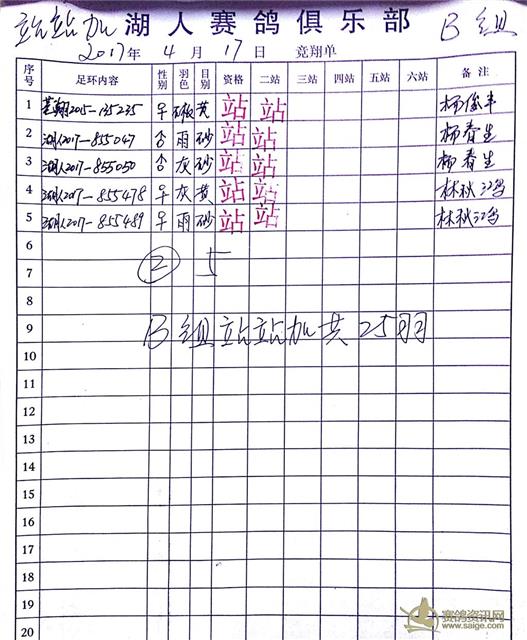 站站加 湖人赛鸽俱乐部 B组
2017年 4月 17日 竞翔单
序号 足环内容 性别 羽色 目别 资格 二站 三站 四站 五站 六站 备注
1 2015-135235 黄 站 站
2 湖人2017-855047 雨 砂 站 站 杨春生
3 湖人2017-855050 灰 砂 站 站 杨春生
4 湖人2017-855478 灰 黄 站 站 林秋
5 湖人2017-855489 雨 砂 站 站 林秋
6
② 5
7
8
9 B组站站加共25羽
10
11
12
13
14
15
16
17
18
19
20
赛鸽资讯网
www.saige.com